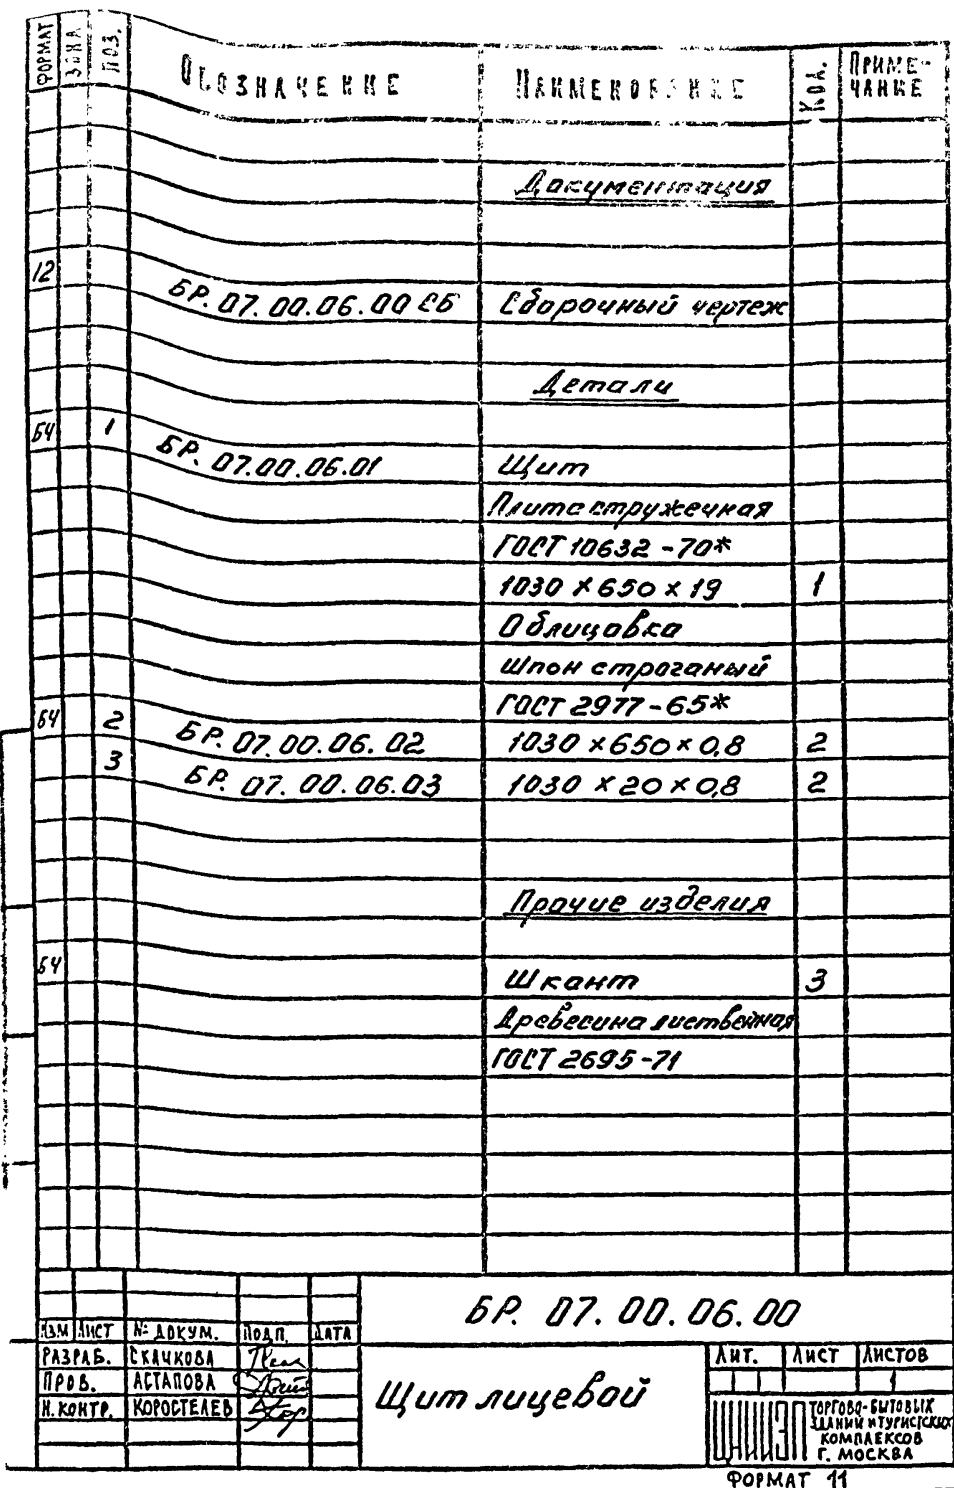 ФОРМАТ ЗОНА ПОЗ. ОБОЗНАЧЕНИЕ НАИМЕНОВАНИЕ КОЛ. ПРИМЕ-
ЧАНИЕ
Документация
12 БР. 07.00.06.00 СБ Сборочный чертеж
Детали
БЧ 1 БР. 07.00.06.01 Щит
Плита стружечная
ГОСТ 10632-70*
1030 х 650 х 19 1
Облицовка
Шпон строганый
ГОСТ 2977-65*
БЧ 2 БР. 07.00.06.02 1030 х 650 х 0,8 2
3 БР. 07.00.06.03 1030 х 20 х 0,8 2
Прочие изделия
БЧ Шкант 3
Древесина лиственная
ГОСТ 2695-71
БР. 07.00.06.00
ИЗМ ЛИСТ № ДОКУМ. ПОДП. ДАТА
РАЗРАБ. СКАЧКОВА
ПРОВ. АСТАПОВА
Н.КОНТР. КОРОСТЕЛЕВ
Щит лицевой
ЛИТ. ЛИСТ ЛИСТОВ
1
ЦНИИЭП
ТОРГОВО-БЫТОВЫХ
ЗДАНИЙ И ТУРИСТСКИХ
КОМПЛЕКСОВ
Г. МОСКВА
ФОРМАТ 11